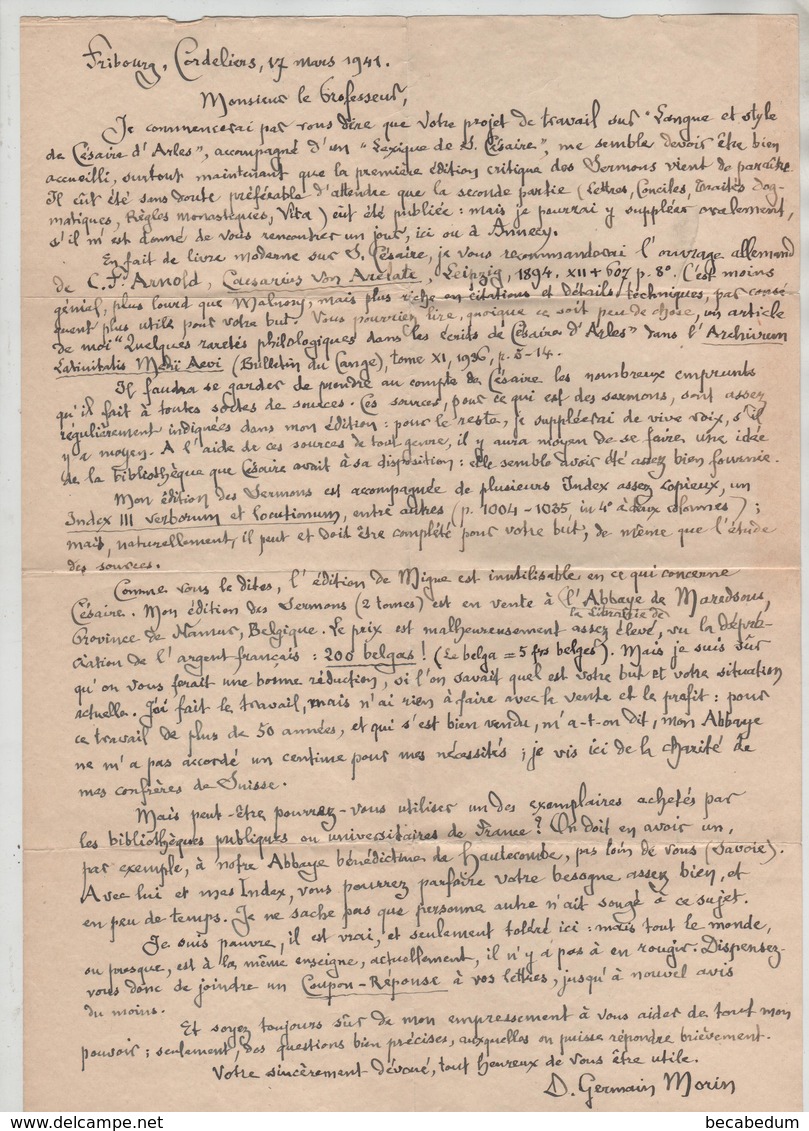 Fribourg, Cordeliers, 17 mars 1941.
Monsieur le Professeur,
Je commencerai par vous dire que votre projet de travail sur "Langue et style
de Césaire d'Arles", accompagné d'un "Lexique de S. Césaire", me semble devoir être bien
accueilli, surtout maintenant que la première édition critique des Sermons vient de paraître.
Il eût été sans doute préférable d'attendre que la seconde partie (Lettres, Conciles, Traités Dog-
matiques, Règles monastiques, Vita) eût été publiée : mais je pourrai y suppléer oralement,
s'il m'est donné de vous rencontrer un jour, ici ou à Annecy.
En fait de livre moderne sur S. Césaire, je vous recommanderai l'ouvrage allemand
de C. Fr. Arnold, Caesarius von Arelate, Leipzig, 1894, XII + 607 p. 8°. C'est moins
génial, plus lourd que Malnory, mais plus riche en citations et détails techniques, par consé-
quent plus utile pour votre but. Vous pourriez lire, quoique ce soit peu de chose, un article
de moi "Quelques raretés philologiques dans les écrits de Césaire d'Arles" dans l'Archivum
Latinitatis Medii Aevi (Bulletin du Cange), tome XI, 1936, p. 5-14.
Il faudra se garder de prendre au compte de Césaire les nombreux emprunts
qu'il fait à toutes sortes de sources. Ces sources, pour ce qui est des sermons, sont assez
régulièrement indiquées dans mon édition : pour le reste, je suppléerai de vive voix, s'il
y a moyen. A l'aide de ces sources de tout genre, il y aura moyen de se faire une idée
de la bibliothèque que Césaire avait à sa disposition : elle semble avoir été assez bien fournie.
Mon édition des Sermons est accompagnée de plusieurs Index assez copieux, un
Index III verborum et locutionum, entre autres (p. 1004-1035, in 4° à deux colonnes) ;
mais, naturellement, il peut et doit être complété pour votre but, de même que l'étude
des sources.
Comme vous le dites, l'édition de Migne est inutilisable en ce qui concerne
Césaire. Mon édition des Sermons (2 tomes) est en vente à la librairie de l'Abbaye de Maredsous,
Province de Namur, Belgique. Le prix est malheureusement assez élevé, vu la dépré-
ciation de l'argent français : 200 belgas ! (Le belga = 5 frs belges). Mais je suis sûr
qu'on vous ferait une bonne réduction, si l'on savait quel est votre but et votre situation
actuelle. J'ai fait le travail, mais n'ai rien à faire avec la vente et le profit : pour
ce travail de plus de 50 années, et qui s'est bien vendu, m'a-t-on dit, mon Abbaye
ne m'a pas accordé un centime pour mes nécessités ; je vis ici de la charité de
mes confrères de Suisse.
Mais peut-être pourrez-vous utiliser un des exemplaires achetés par
les bibliothèques publiques ou universitaires de France ? On doit en avoir un,
par exemple, à notre Abbaye bénédictine de Hautecombe, pas loin de vous (Savoie).
Avec lui et mes Index, vous pourrez parfaire votre besogne assez bien, et
en peu de temps. Je ne sache pas que personne autre n'ait songé à ce sujet.
Je suis pauvre, il est vrai, et seulement toléré ici : mais tout le monde,
ou presque, est à la même enseigne, actuellement, il n'y a pas à en rougir. Dispensez-
vous donc de joindre un Coupon-Réponse à vos lettres, jusqu'à nouvel avis
du moins.
Et soyez toujours sûr de mon empressement à vous aider de tout mon
pouvoir ; seulement, des questions bien précises, auxquelles on puisse répondre brièvement.
Votre sincèrement dévoué, tout heureux de vous être utile.
D. Germain Morin
becabedum - delcampe.net